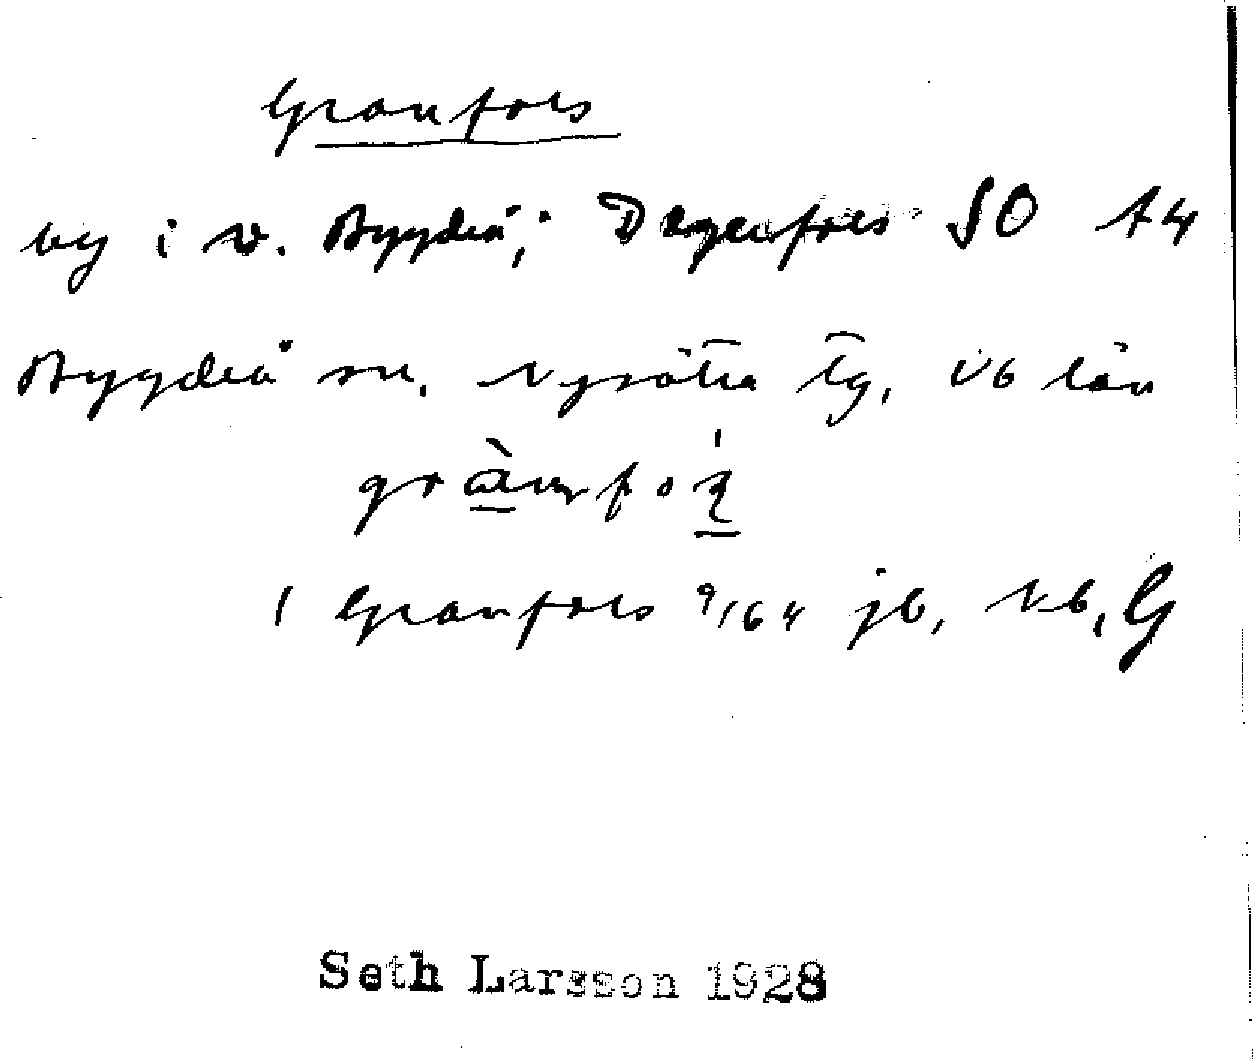 Granfors
by i v. Bygdeå; Degerfors SO f4
Bygdeå sn, Nysätra tg, Vb län
1 Granfors 9/64 jb, Vb, G
Seth Larsson 1928